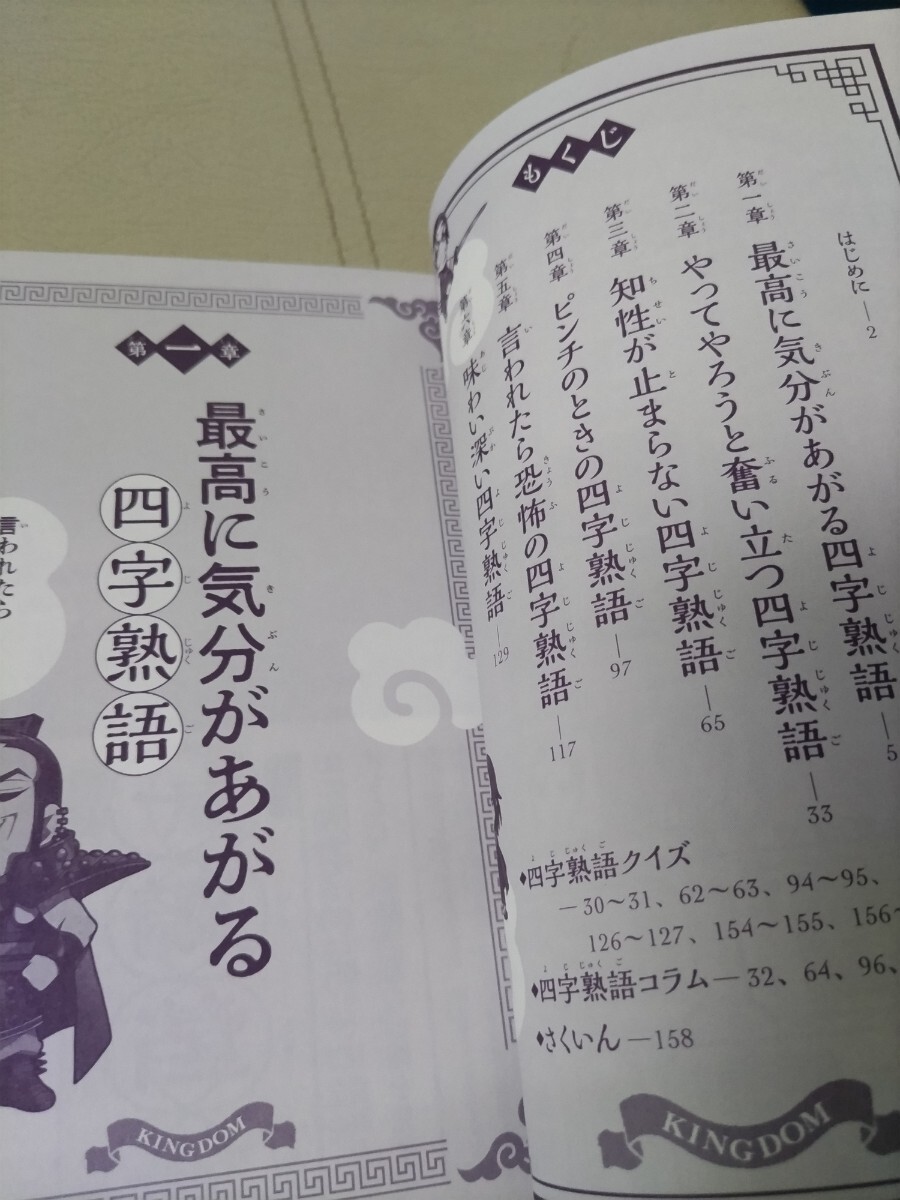 もくじ
はじめに—2
第一章 最高に気分があがる四字熟語—5
第二章 やってやろうと奮い立つ四字熟語—33
第三章 知性が止まらない四字熟語—65
第四章 ピンチのときの四字熟語—97
第五章 言われたら恐怖の四字熟語—117
第六章 味わい深い四字熟語—129
♦四字熟語クイズ
—30〜31、62〜63、94〜95、
126〜127、154〜155、156〜
♦四字熟語コラム—32、64、96、
♦さくいん—158
KINGDOM
第一章
最高に気分があがる
四字熟語
言われたら
KINGDOM